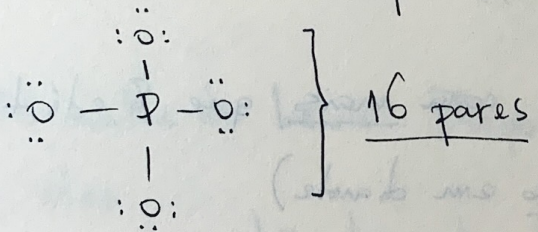 :Ö:
|
:Ö — P — Ö:
|
:Ö:
} 16 pares